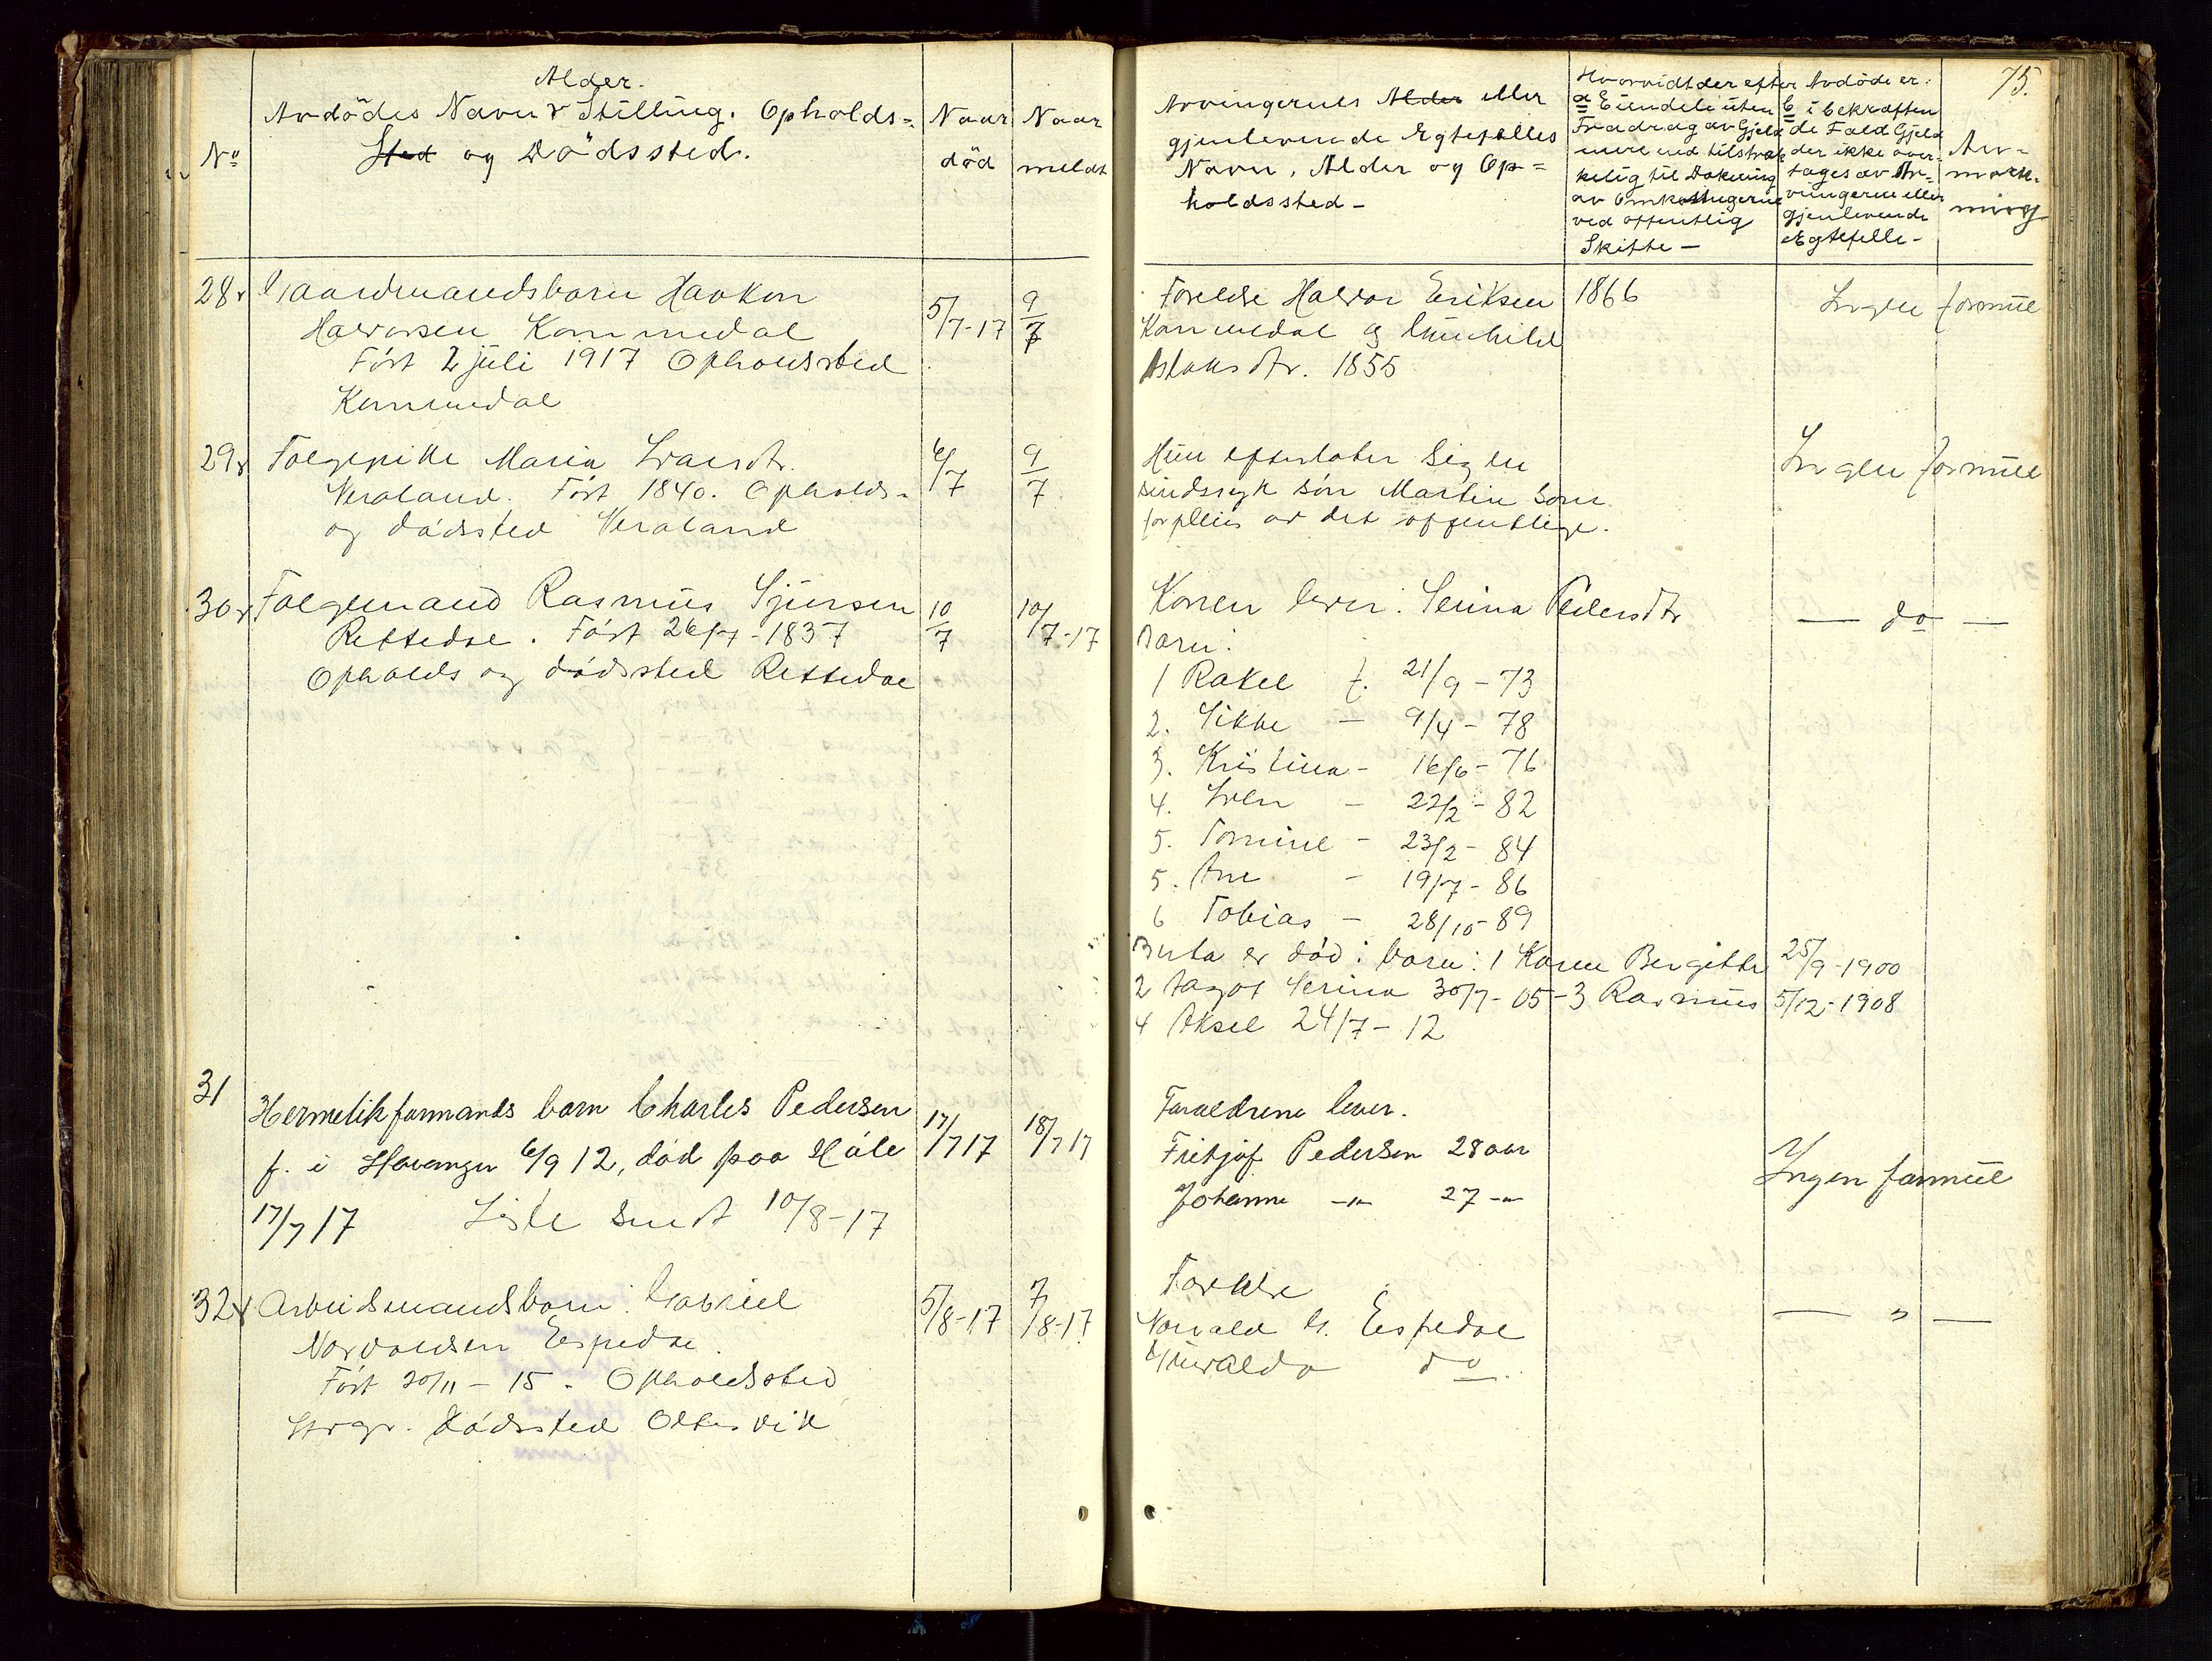 75.
Alder.
Avdödes Navn & Stilling. Opholds-
Sted og Dödssted.
No
Naar
död
Naar
meldt
Arvingernes Alder eller
gjenlevende Egtefælles
Navn, Alder og Op-
holdssted -
Hvorvidt der efter Avdöde er:
a Eiendele uten
Fradrag av Gjeld
mere end tilstræk
kelig til Dækning
av Omkostningerne
ved offentlig
Skifte -
b i bekræften
de Fald Gjeld
der ikke over-
tages av Ar-
vingerne eller
gjenlevende
Egtefelle -
An-
mærk-
ning
28 Gaardmandsbarn Haakon 5/7-17 9/7
Halvorsen Kommedal
Fört 2 juli 1917 Opholdsted
Kommedal
Foreldre Halvor Eriksen 1866 Ingen formue
Kommedal og Gunhild
Aslaksdtr. 1855
29 Følgepike Maria 6/7 9/7
Veraland. Föt 1840. Opholds-
og dödsted Veraland
Hun efterlater sig en Ingen formue
sindssyk sön Martin som
forpleies av det offentlige.
30 Følgemand Rasmus Sjursen 10/7 10/7-17
Rettedal. Föt 26/7-1837
Opholds og dödssted Rettedal
Konen lever: Serina Pedersdtr — do —
Barn:
1 Rakel f. 21/9-73
2. - 9/4-78
3. Kristina - 16/6-76
4. Sven - 22/2-82
5. Tomine - 23/2-84
5. Ane - 19/7-86
6 Tobias - 28/10-89
Berta er död: barn: 1 Karen Bergitte 25/9-1900
2 Aagot Serina 30/7-05-3 Rasmus 5/12-1908
4 Aksel 24/7-12
31
Hermetikformands barn Charles Pedersen 17/7 17 18/7 17
f. i Stavanger 6/9 12, död paa Håle
17/7 17 Liste sendt 10/8-17
Foreldrene lever.
Fritjof Pedersen 28 aar Ingen formue
Johanne -"- 27 -"-
32 Arbeidsmandsbarn Gabriel 5/8-17 7/8-17
Norvaldsen Espedal.
Föt 20/11-15. Opholdssted
Dödssted Oltesvik
Foreldre
Norvald G. Espedal — " —
do